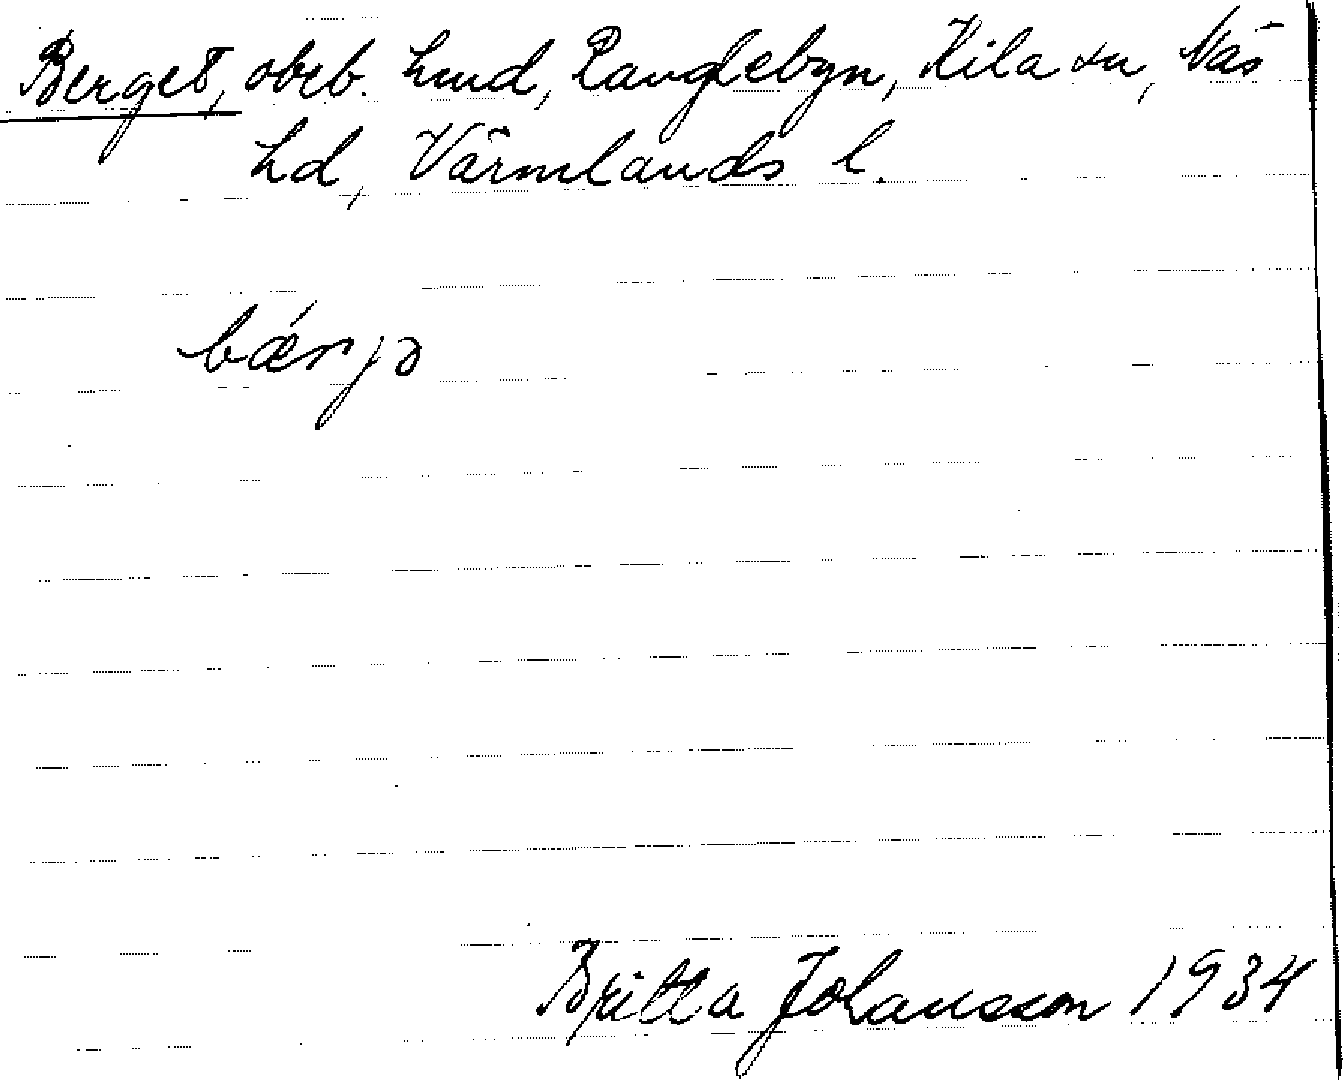 Berget, obeb. hmd, Ranglebyn, Kila sn, Näs
hd, Värmlands l.
bǽrjə
Britta Johansson 1934